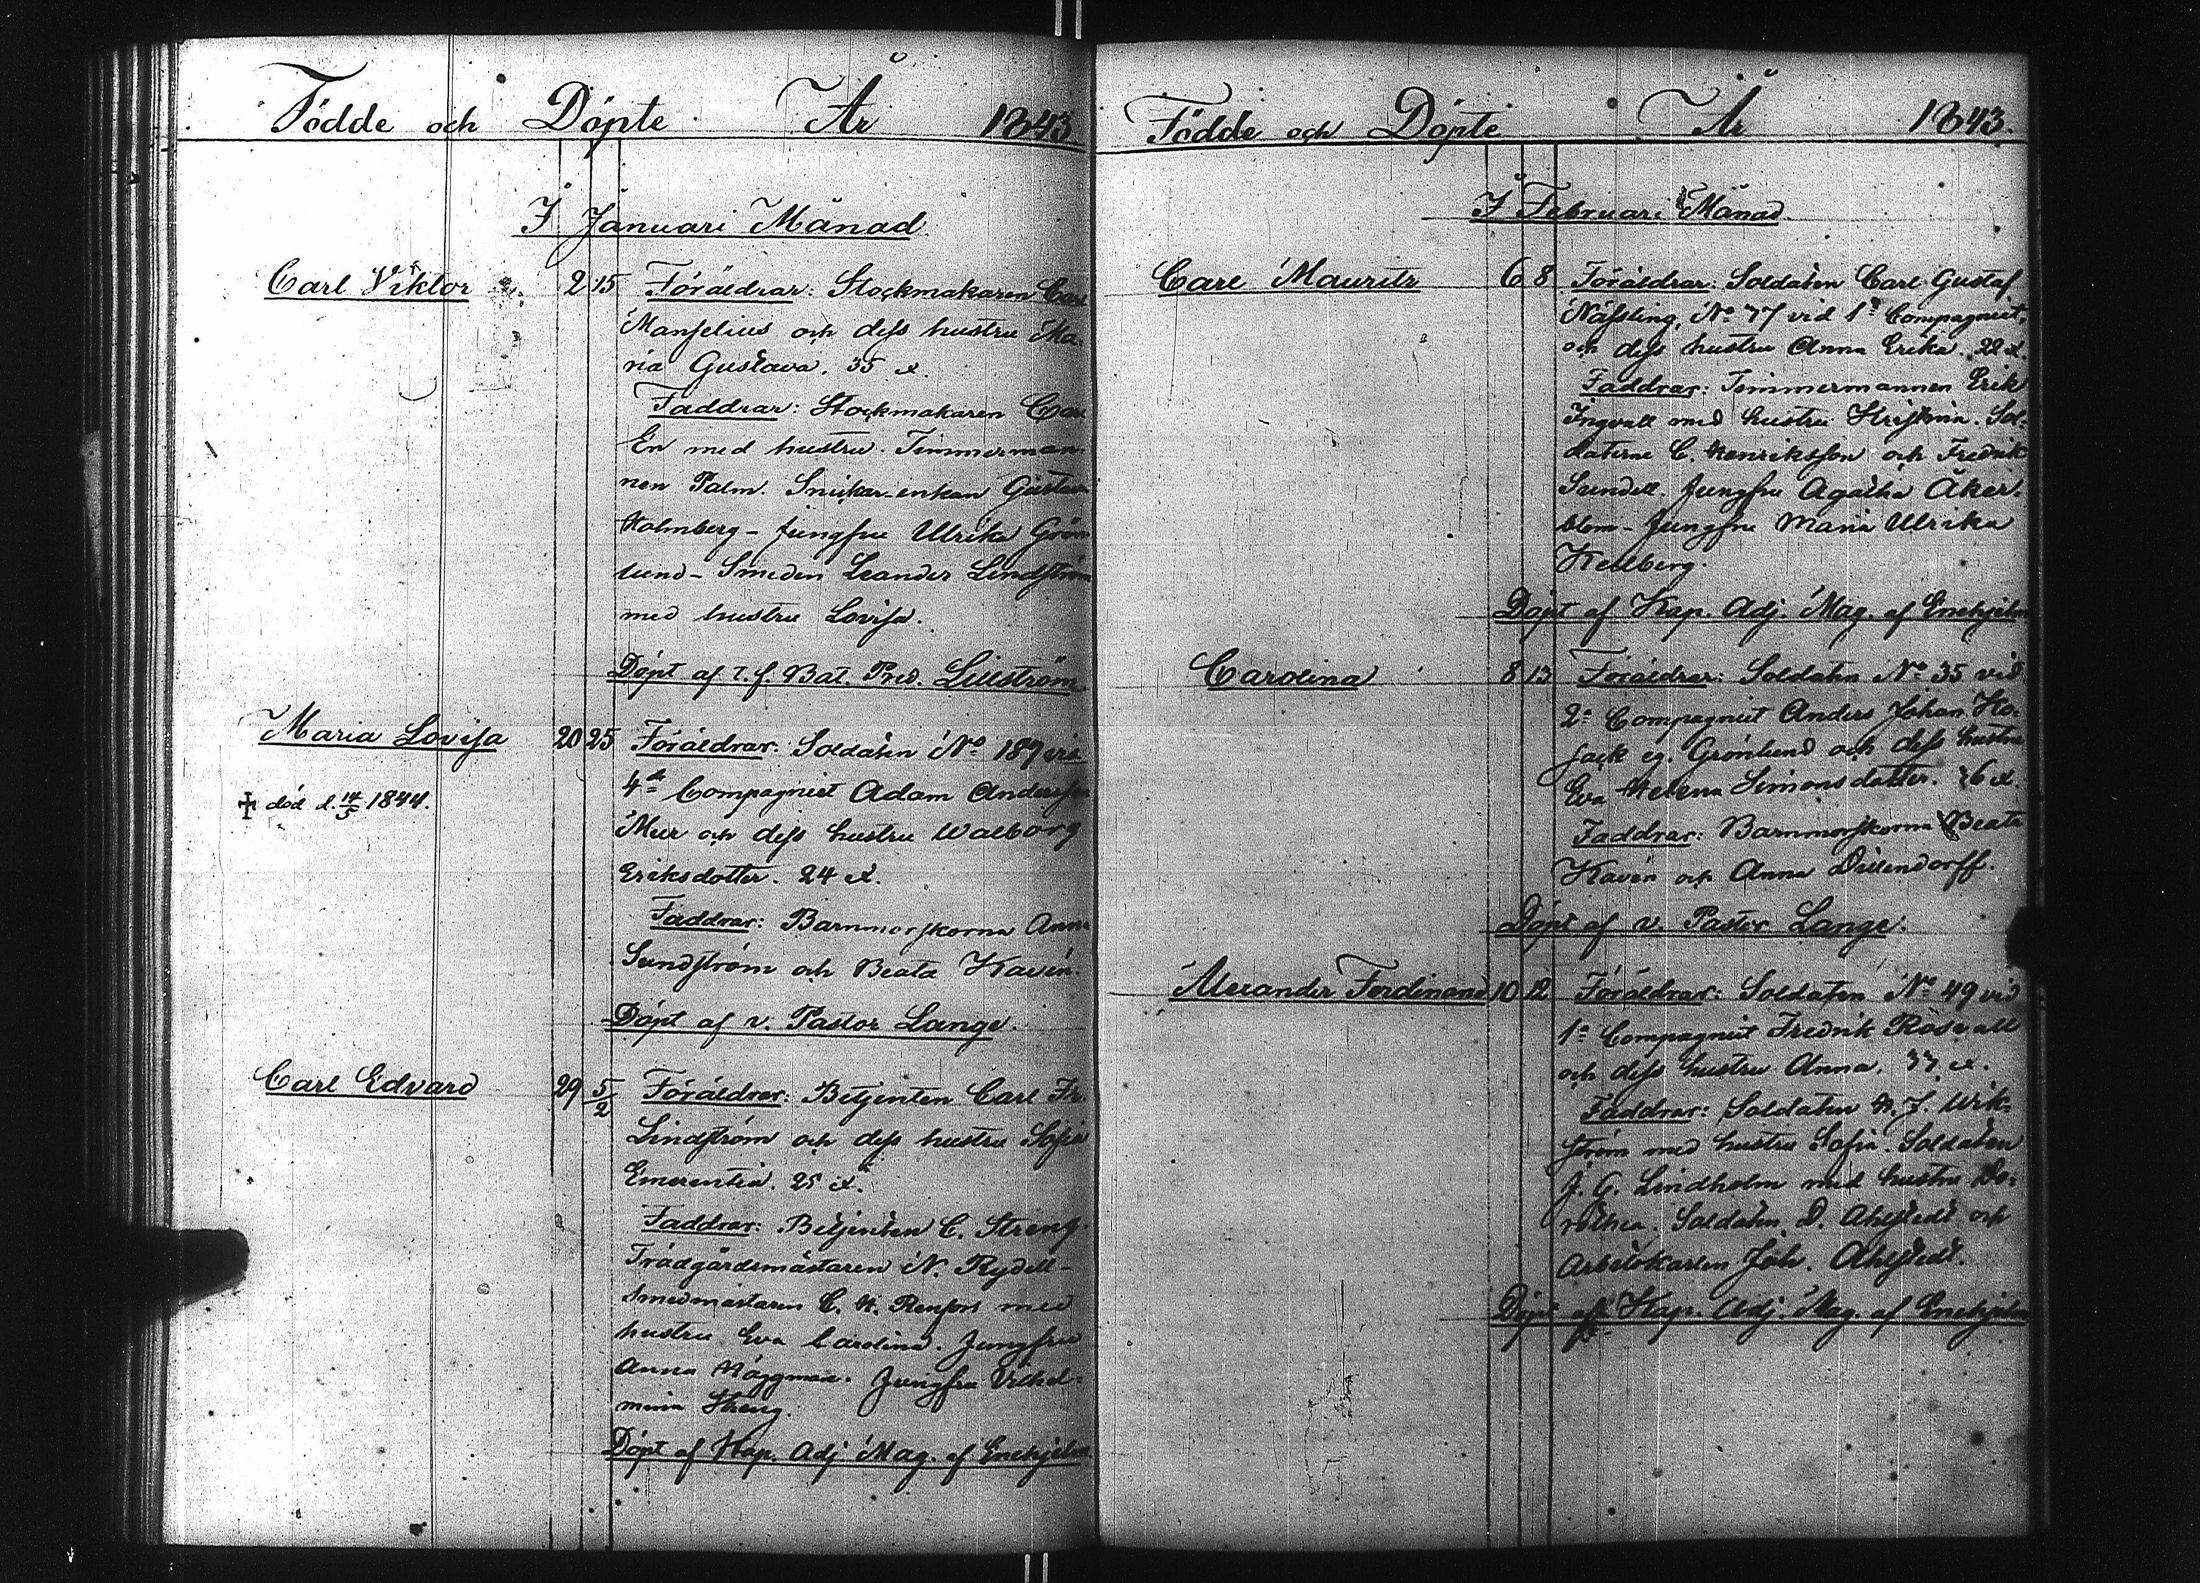 Födde och Döpte År 1843
I Januari Månad
Carl Viktor 2 15 Föräldrar: Stockmakaren Carl
Manselius och dess hustru Ma-
ria Gustava. 35 år.
Faddrar: Stockmakaren Carl
En med hustru. Timmerman-
nen Palm. Snickar-enkan Gustava
Holmberg – Jungfru Ulrika Grön-
lund – Smeden Leander Lindström
med hustru Lovisa.
Döpt af t. f. Bat. Pred. Lillström
Maria Lovisa 20 25 Föräldrar: Soldaten No 189 vid
4de Compagniet Adam Andersson
† död d. 14/5 1844.
Mur och dess hustru Walborg
Eriksdotter. 24 år.
Faddrar: Barnmorskorna Anna
Sundström och Beata Kavén.
Döpt af v. Pastor Lange.
Carl Edvard 29 5/2 Föräldrar: Betjenten Carl Fr.
Lindström och dess hustru Sofia
Emerentia. 25 år.
Faddrar: Betjenten C. Streng.
Trädgårdsmästaren N. Rydell –
Smedmästaren C. H. Renfors med
hustru Eva Carolina. Jungfru
Anna Häggman. Jungfru Vilhel-
mina Streng.
Döpt af Kap. Adj. Mag. af Enehjelm.
Födde och Döpte År 1843.
I Februari Månad
Carl Mauritz 6 8 Föräldrar: Soldaten Carl Gustaf
Nässling, No 77 vid 1a Compagniet,
och dess hustru Anna Erika. 22 år.
Faddrar: Timmermannen Erik
Ingvall med hustru Kristina. Sol-
daterne C. Henriksson och Fredrik
Sundell. Jungfru Agatha Åker-
blom – Jungfru Maria Ulrika
Hellberg.
Döpt af Kap. Adj. Mag. af Enehjelm
Carolina 8 13 Föräldrar: Soldaten No 35 vid
2a Compagniet Anders Johan Ko-
jack eg. Grönlund och dess hustru
Eva Helena Simonsdotter. 36 år.
Faddrar: Barnmorskorna Beata
Kavén och Anna Dillendorff.
Döpt af v. Pastor Lange.
Alexander Ferdinand 10 12 Föräldrar: Soldaten No 49 vid
1a Compagniet Fredrik Rosvall
och dess hustru Anna. 33 år.
Faddrar: Soldaten H. J. Wik-
ström med hustru Sofia. Soldaten
J. G. Lindholm med hustru Do-
rothea. Soldaten D. Ahlstedt och
Arbetskarlen Joh. Ahlstedt.
Döpt af Kap. Adj. Mag. af Enehjelm